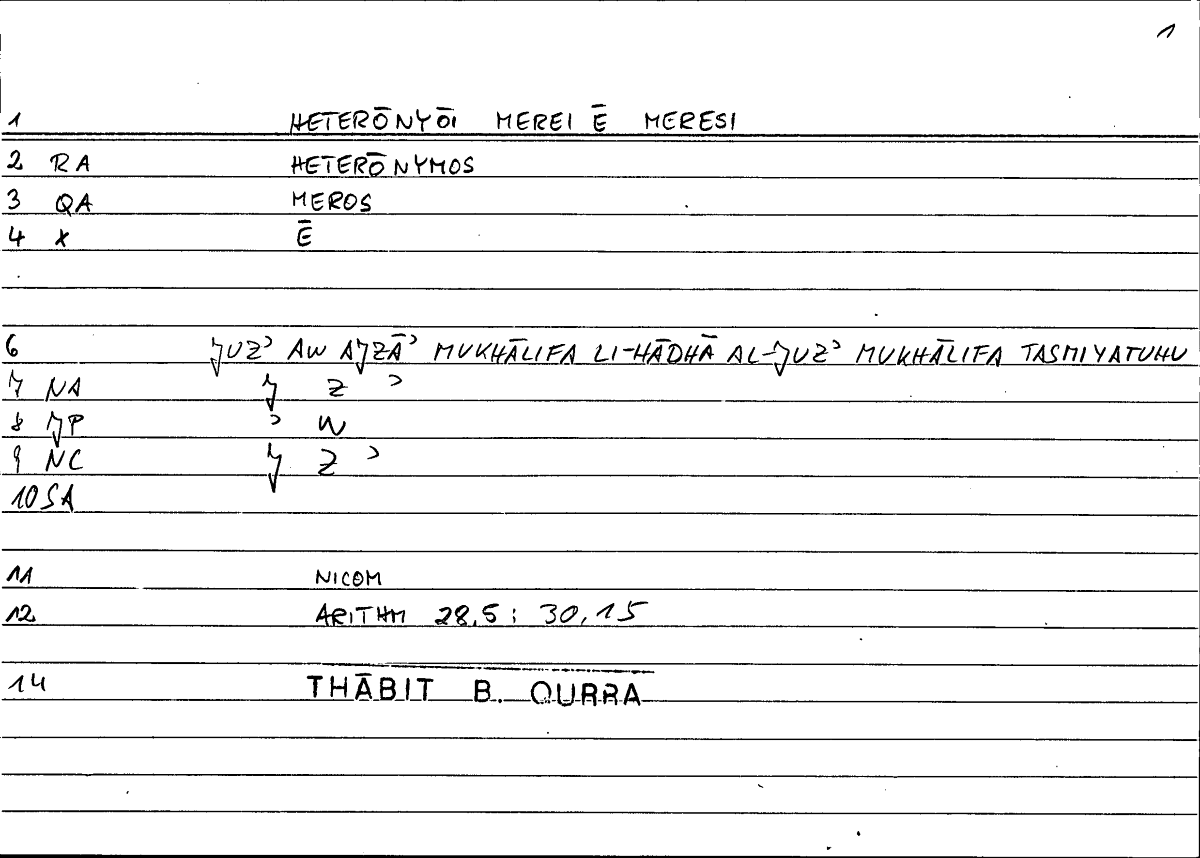 1
1 HETERŌNYŌI MEREI Ē MERESI
2 RA HETERŌNYMOS
3 QA MEROS
4 X Ē
6 JUZʾ AW AJZĀʾ MUKHĀLIFA LI-HĀDHĀ AL-JUZʾ MUKHĀLIFA TASMIYATUHU
7 NA J Z ʾ
8 JP ʾ W
9 NC J Z ʾ
10 SA
11 NICOM
12 ARITHM 28,5; 30,15
14 THĀBIT B. QURRA